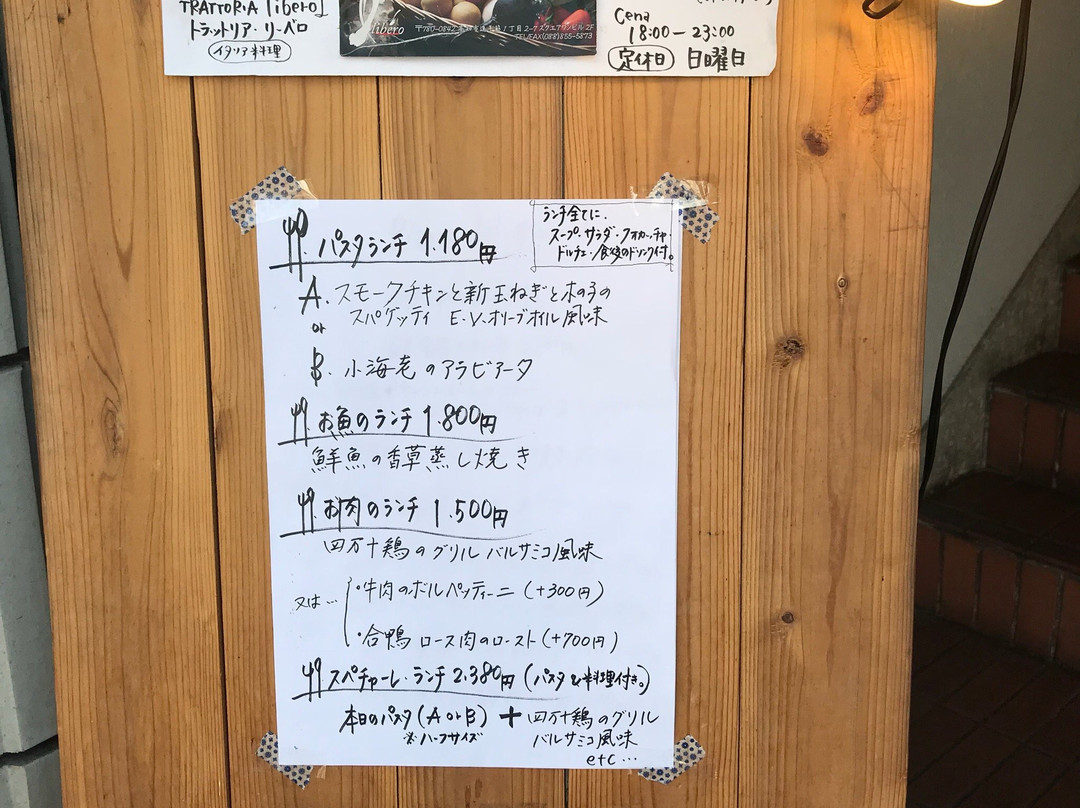 TRATTORIA「libero」
トラットリア・リーベロ
イタリア料理
libero
TEL/FAX(088)855-5873
Cena
18:00-23:00
定休日 日曜日
ランチ全てに、
スープ・サラダ・フォカッチャ・
ドルチェ・食後のドリンク付。
パスタランチ 1.180円
A. スモークチキンと新玉ねぎと木の子の
スパゲッティ E.V.オリーブオイル風味
or
B. 小海老のアラビアータ
お魚のランチ 1.800円
鮮魚の香草蒸し焼き
お肉のランチ 1.500円
四万十鶏のグリル バルサミコ風味
又は…
・牛肉のポルペッティーニ (+300円)
・合鴨ロース肉のロースト (+700円)
スペチャーレ・ランチ 2.380円 (パスタ&料理付き。)
本日のパスタ (A or B) + 四万十鶏のグリル
※ハーフサイズ バルサミコ風味
etc…